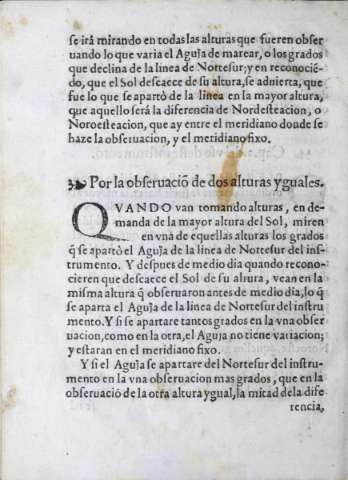 se irá mirando en todas las alturas que fueren obser
uando lo que varia el Aguja de marear, o los grados
que declina de la linea de Nortesur; y en reconociē-
do, que el Sol descaece de su altura, se aduierta, que
fue lo que se apartò de la linea en la mayor altura,
que aquello será la diferencia de Nordesteacion, o
Noroesteacion, que ay entre el meridiano donde se
haze la obseruacion, y el meridiano fixo.
Por la obseruaciō de dos alturas yguales.
QVANDO van tomando alturas, en de-
manda de la mayor altura del Sol, miren
en vna de equellas alturas los grados
q̄ se apartò el Aguja de la linea de Nortesur del ins-
trumento. Y despues de medio dia quando recono-
cieren que descaece el Sol de su altura, vean en la
misma altura q̄ obseruaron antes de medio dia, lo q̄
se aparta el Aguja de la linea de Nortesur del instru
mento. Y si se apartare tantos grados en la vna obser
uacion, como en la otra, el Aguja no tiene variacion;
y estaran en el meridiano fixo.
Y si el Aguja se apartare del Nortesur del instru-
mento en la vna obseruacion mas grados, que en la
obseruaciō de la otra altura ygual, la mitad de la dife
rencia,